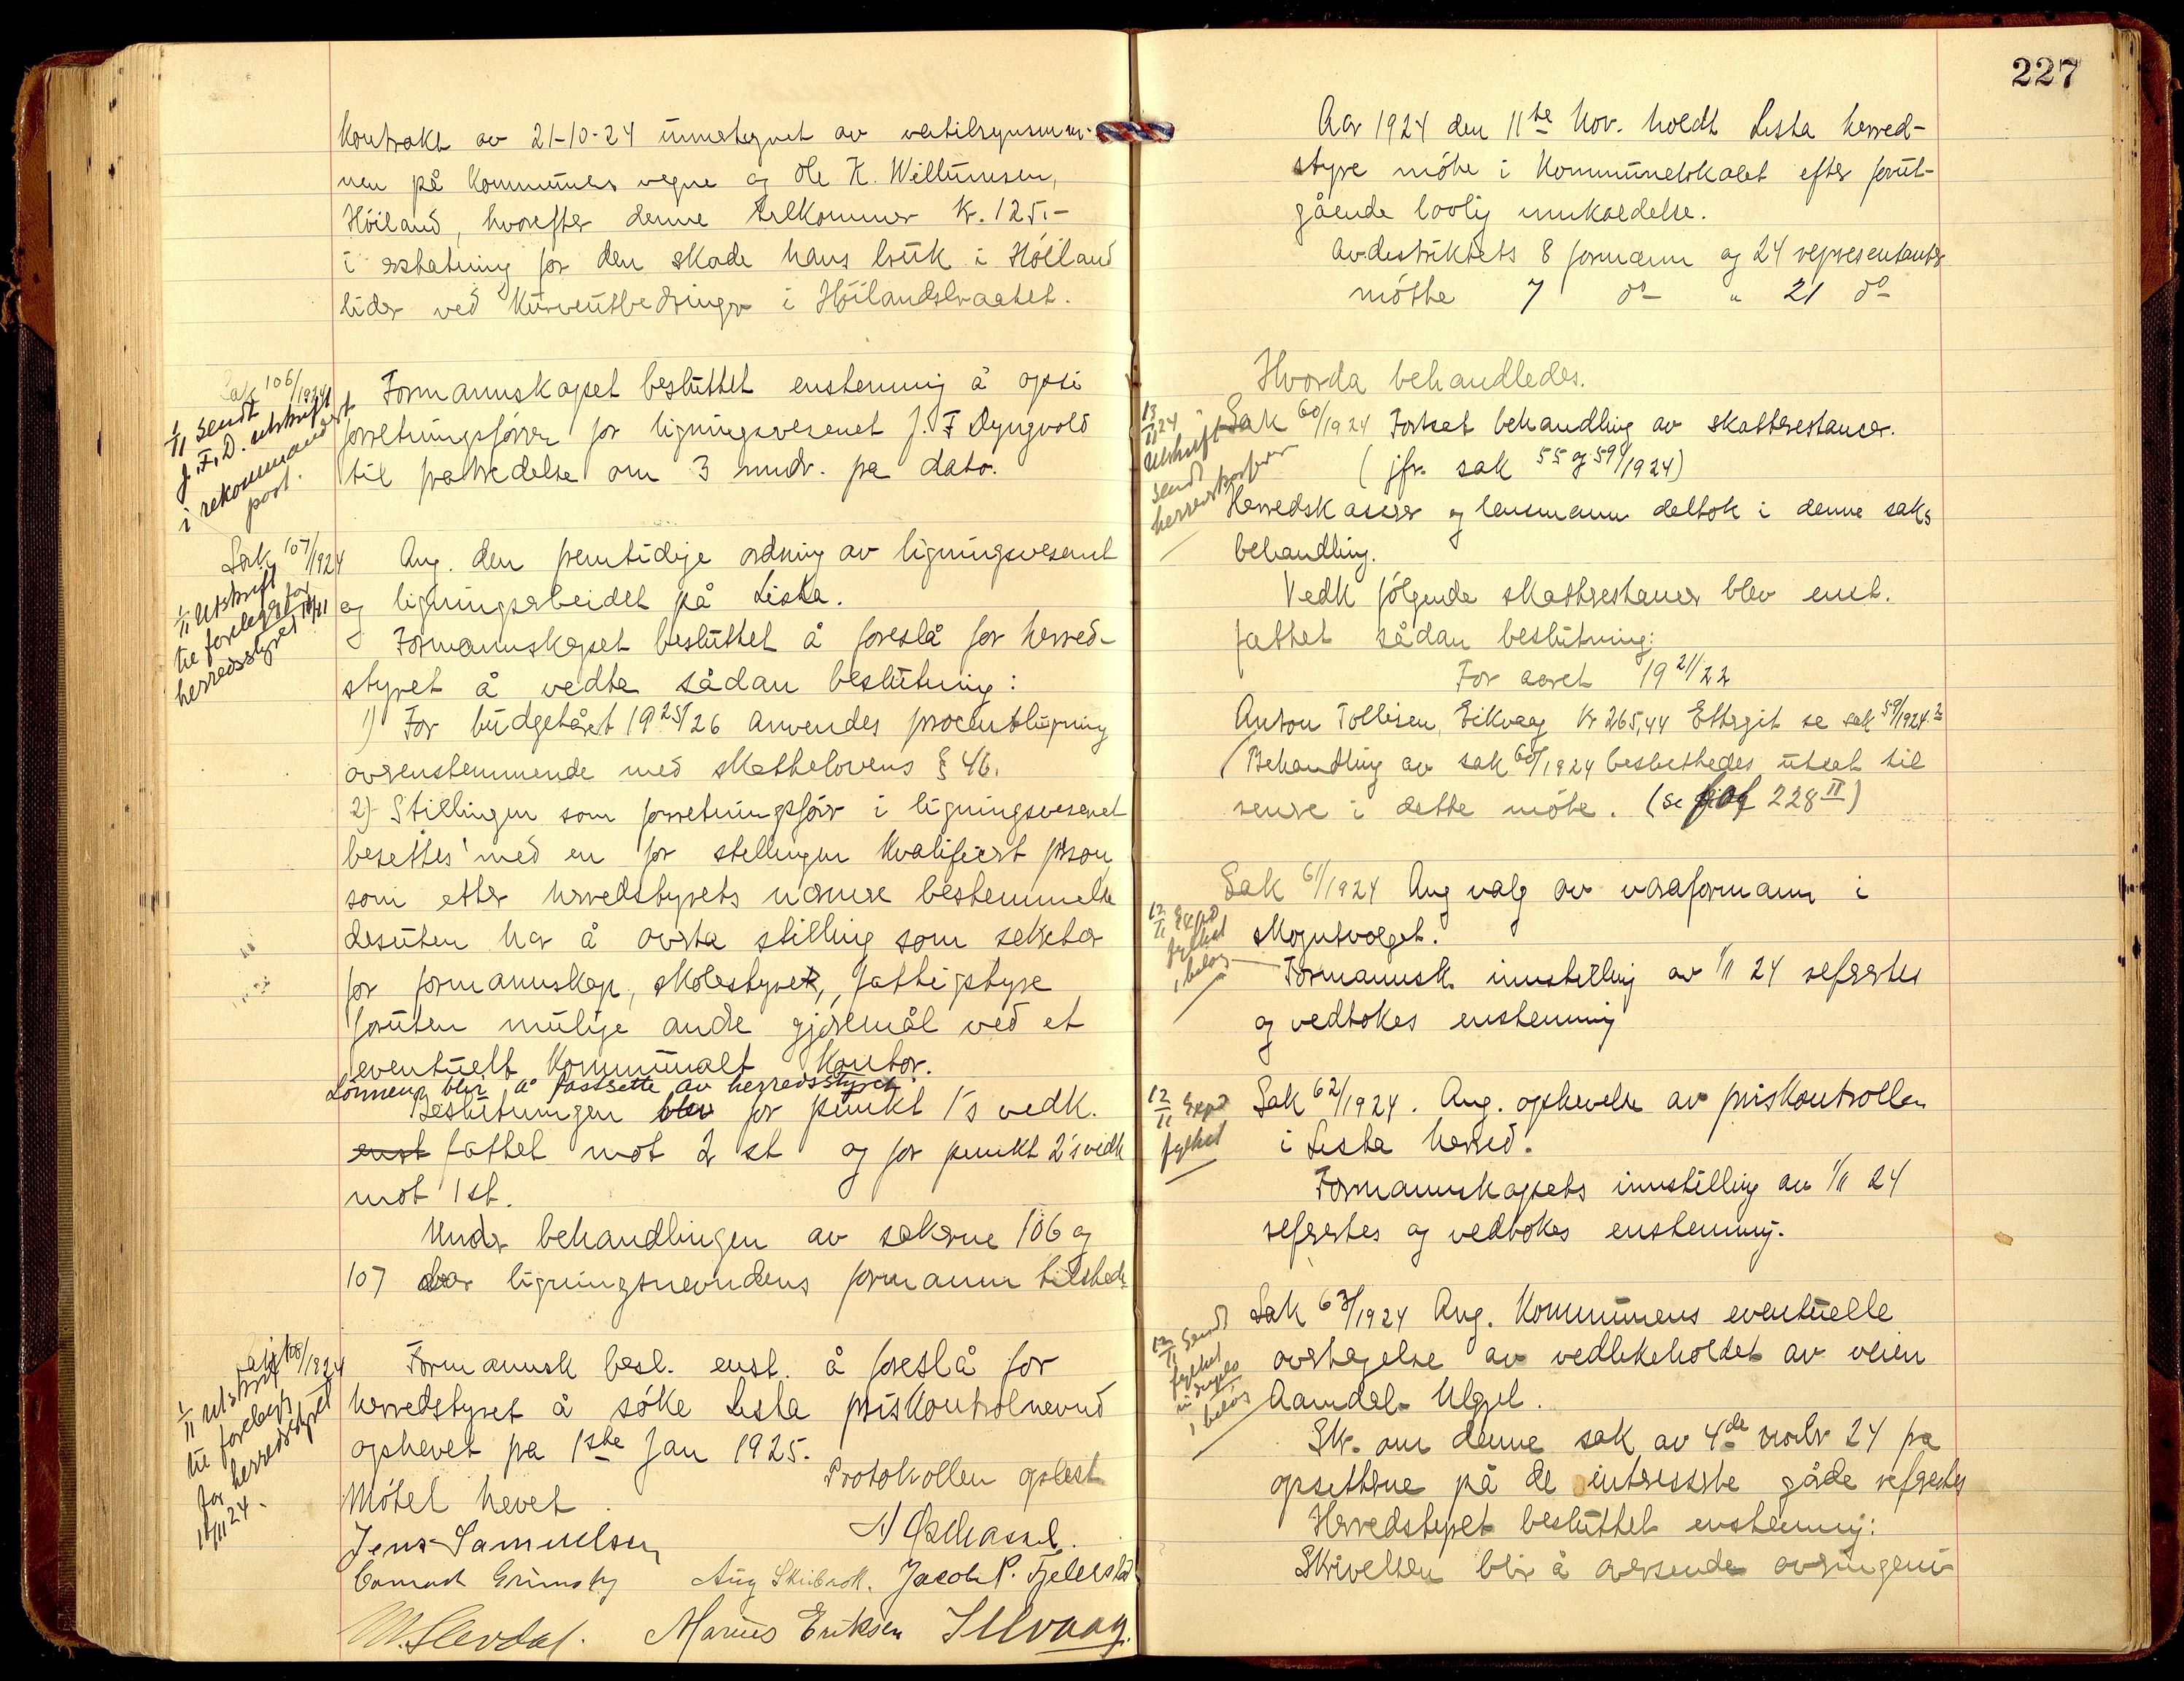 Kontrakt av 21-10-24 innstegnet av veitilsynsmen-
nen på Kommunens vegne og Ole K. Willumsen,
Höiland, hvorefter denne tilkommer Kr. 125.-
i erstatning for den skade hans bruk i Höiland
lider ved Kurveutbedringer i Höilandsbraatet.
Sak 106/1924
1/11 sendt
J.F.D. utskrift
i rekommandert
post.
Formannskapet besluttet enstemmig å opsi
forretningsförer for ligningsvesenet J. F Dyngvold
til fratredelse om 3 mndr. fra dato.
Sak 107/1924
1/11 Utskrift
til foreleggg for
herredsstyret 11/11
Ang. den fremtidige ordning av ligningsvesenet
og ligningsarbeidet på Lista.
Formannskapet besluttet å foreslå for herred-
styret å vedta sådan beslutning:
1) For budgetåret 1925/26 anvendes procentligning
overenstemmende med skattelovens § 46.
2) Stillingen som forretningsförer i ligningsvesenet
besettes med en for stillingen kvalifisert person
som etter herredstyrets nærmere bestemmelse
desuten har å overta stilling som sekretær
for formannskap, skolestyret, fattigstyre
foruten mulige andre gjöremål ved et
eventuelt Kommunalt Kontor.
Lönnen blir å fastsette av herredsstyret.
Beslutningen blev for punkt 1's vedk.
enst fattet mot 2 st og for punkt 2's vedk
mot 1 st.
Under behandlingen av sakerne 106 og
107 var ligningsnevndens formann tilstede
Sak 108/1924
1/11 Utskrift
til forelegg
for herredsstyret
11/11 24.
Formannsk besl. enst. å foreslå for
herredstyret å söke Lista priskontrolnevnd
ophevet fra 1ste Jan 1925.
Protokollen oplest
Mötet hevet.
Jens Samuelsen
Conrad Grimsby Aug Skibnott. Jacob P. Tjelerslad
M. Slevdal. Marius Eriksen J Ulvaag.
227
Aar 1924 den 11te Nov. holdt Lista herred-
styre möte i Kommunelokalet efter forut-
gående lovlig innkaldelse.
Av distriktets 8 formænn og 24 representanter
mötte 7 do " 21 do
Hvorda behandledes.
13/11 24
Utskrift
sendt
herredskasserer
Sak 60/1924 Fortsat behandling av skatterestancer.
(jfr. sak 55 og 59/1924)
Herredskasserer og lensmann deltok i denne saks
behandling.
Vedk följende skatterestancer blev enst.
fattet sådan beslutning:
For aaret 1921/22
Anton Tollisen, Eikvaag Kr 265,44 Ettergit se sak 59/1924.
Behandling av sak 60/1924 besluttedes utsat til
senere i dette möte. (se fol 228 II)
12/11 Expd
fylket
1 bilag
Sak 61/1924 Ang valg av varaformann i
skogutvalget.
Formannsk. innstilling av 1/11 24 refertes
og vedtokes enstemmig
12/11 Expd
fylket
Sak 62/1924. Ang. ophevelse av priskontrollen
i Lista herred.
Formannskapets innstilling av 1/11 24
refertes og vedtokes enstemmig.
12/11 Sendt
fylket
1 bilag
Sak 63/1924 Ang. Kommunens eventuelle
overtagelse av vedlikeholdet av veien
Aamdal- Ulgjel.
Skr. om denne sak av 4de novbr 24 fra
opsitterne på de interesserte gårde refertes
Herredstyret besluttet enstemmig:
Skrivelsen blir å oversende overingeni-